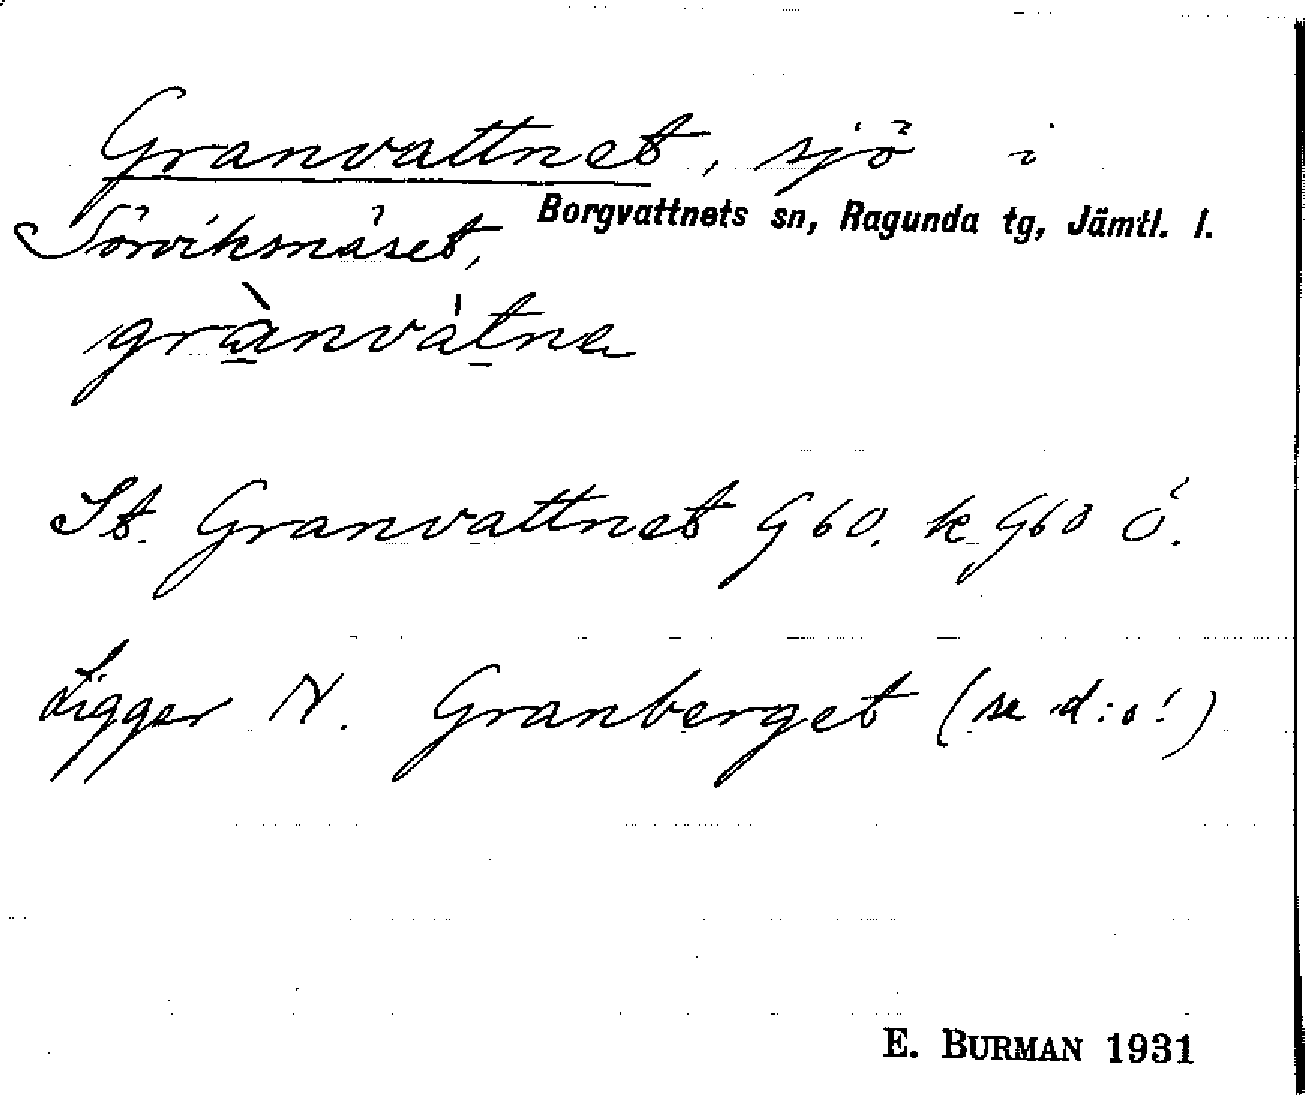 Granvattnet, sjö i
Borgvattnets sn, Ragunda tg, Jämtl. l.
Sörviksnäset,
grànvátne
St. Granvattnet G 60. k G60 Ö.
Ligger N. Granberget (se d:o!)
E. BURMAN 1931